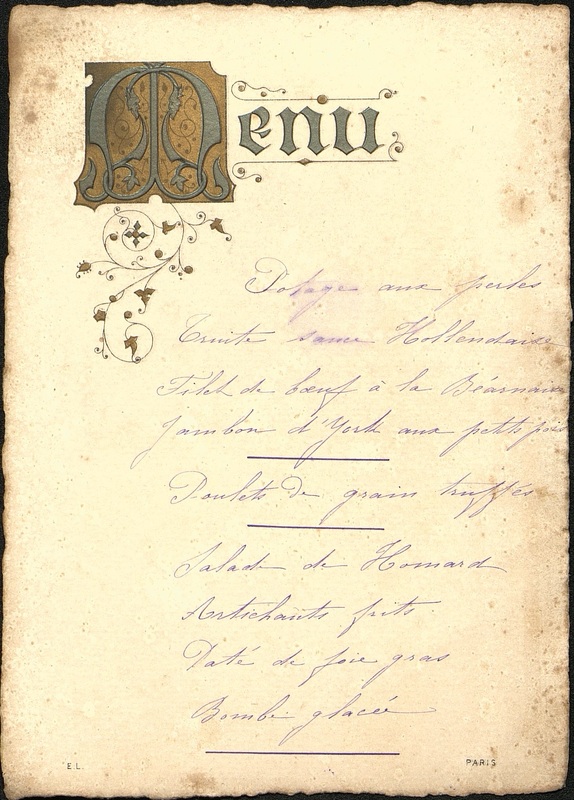 Menu
Potage aux perles
Truite sauce Hollendaise
Filet de bœuf à la Béarnaise
Jambon d'York aux petits pois
Poulets de grain truffés
Salade de Homard
Artichants frits.
Paté de foie gras
Bombe glacée
E.L.
PARIS